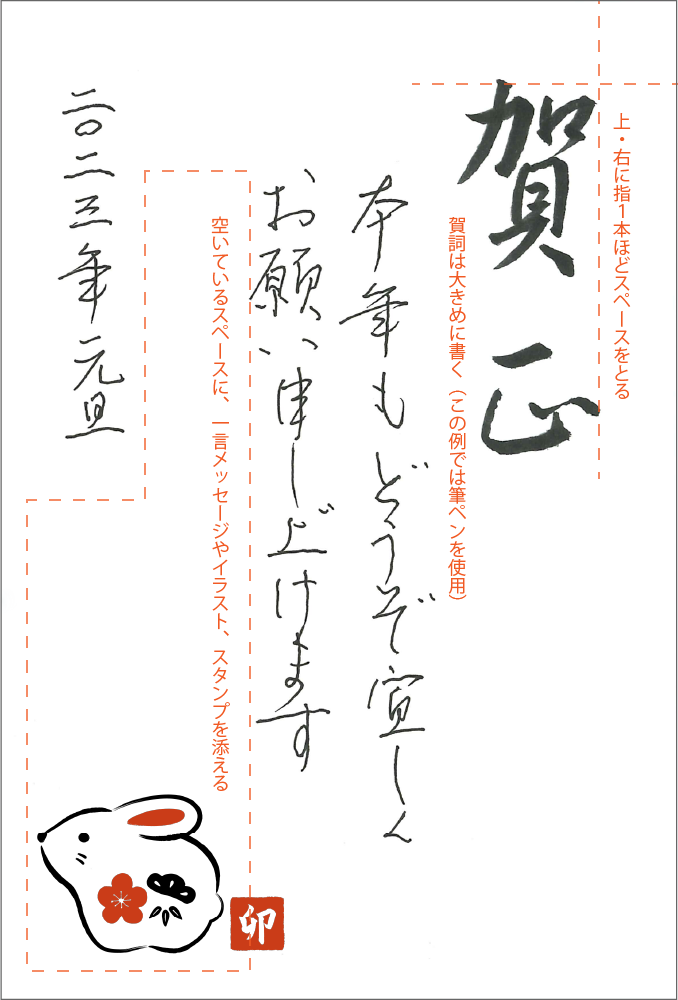 上・右に指１本ほどスペースをとる
賀正
賀詞は大きめに書く（この例では筆ペンを使用）
本年もどうぞ宜しく
お願い申し上げます
空いているスペースに、一言メッセージやイラスト、スタンプを添える
二〇二三年元旦
卯